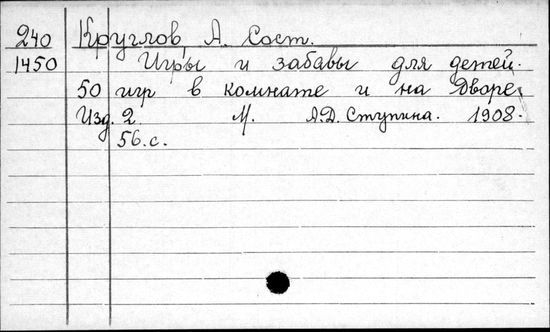 240 Круглов А. Сост.
1450 Игры и забавы для детей.
50 игр в комнате и на дворе.
Изд. 2. М. А.Д. Ступина. 1908.
56. с.